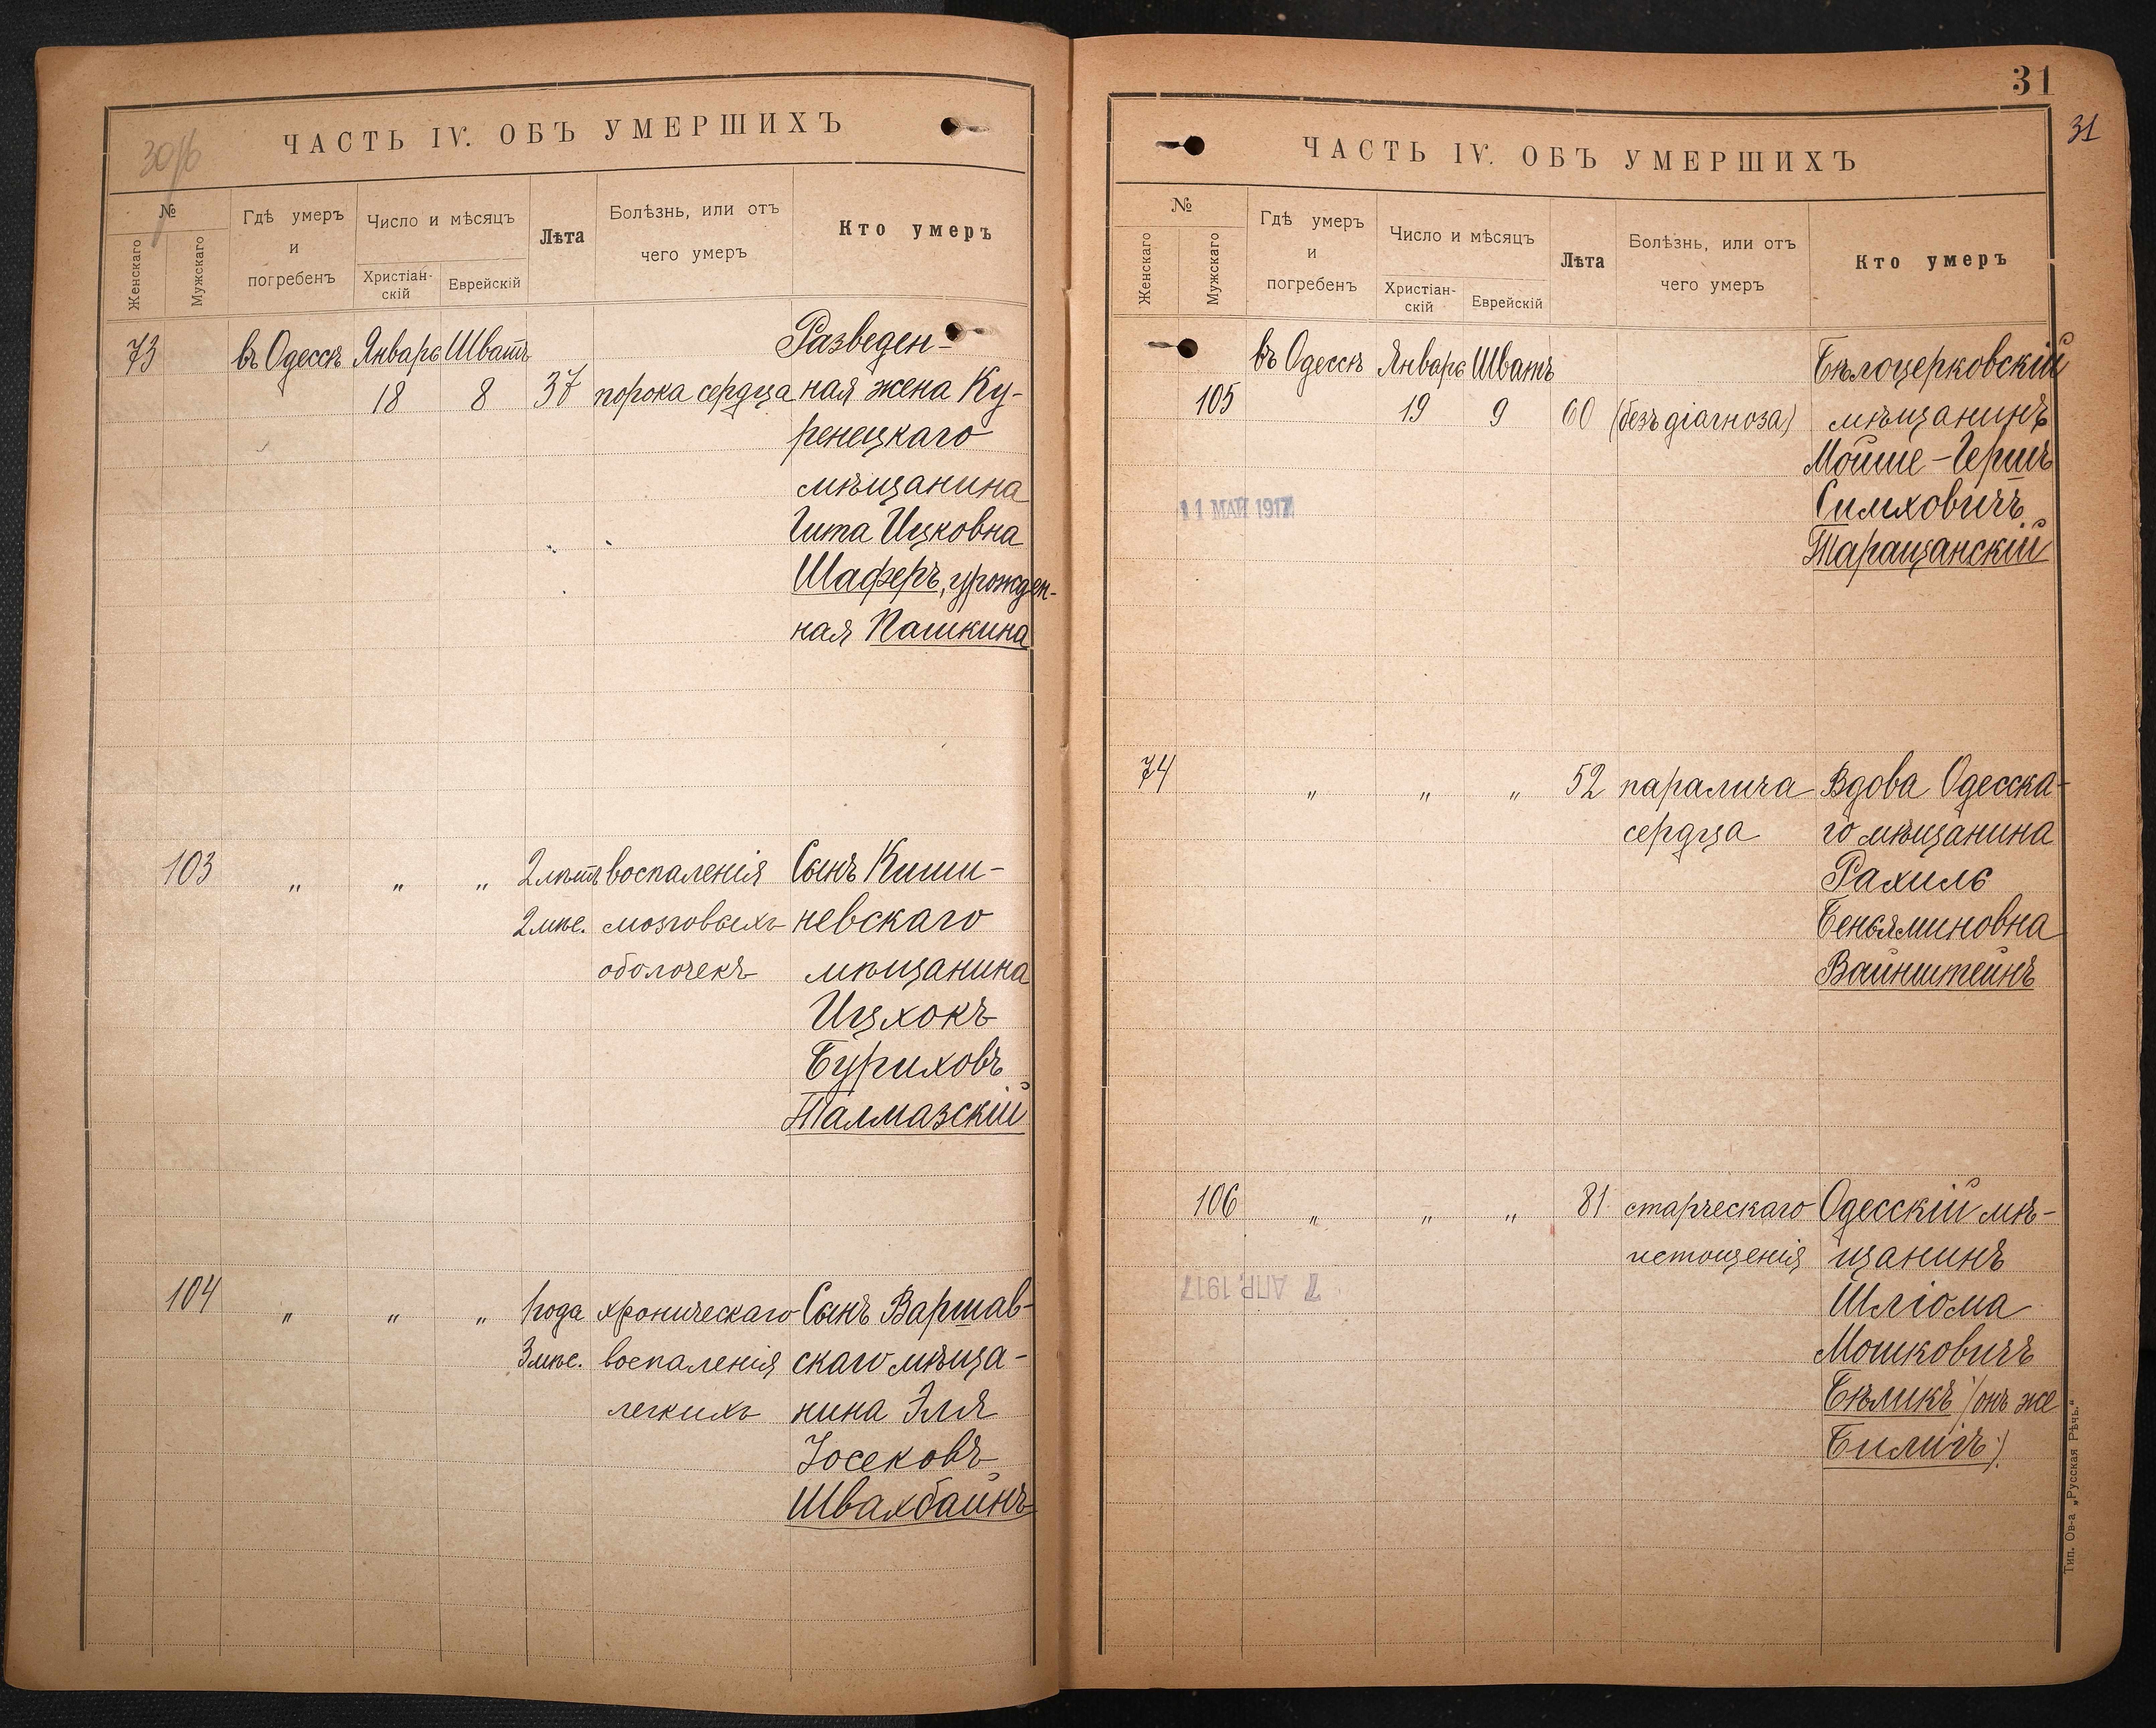 30/16
ЧАСТЬ IV. ОБЪ УМЕРШИХЪ
№
Женскаго
Мужскаго
Гдѣ умеръ
и
погребенъ
Число и мѣсяцъ
Христіан-
скій
Еврейскій
Лѣта
Болѣзнь, или отъ
чего умеръ
Кто умеръ
73 въ Одессѣ Январь Шватъ Разведен-
18 8 37 порока сердца ная жена Ку-
ренецкаго
мѣщанина
Гита Ицковна
Шаферъ, урожден-
ная Пашкина
103 " " " 2 лѣтъ воспаленія Сынъ Киши-
2 мѣс. мозговыхъ невскаго
оболочекъ мѣщанина
Ицхокъ
Буриховъ
Талмазскій
104 " " " 1 года хроническаго Сынъ Варшав-
3 мѣс. воспаленія скаго мѣща-
легкихъ нина Эля
Іосековъ
Швахбайнъ
31
31
ЧАСТЬ IV. ОБЪ УМЕРШИХЪ
№
Женскаго
Мужскаго
Гдѣ умеръ
и
погребенъ
Число и мѣсяцъ
Христіан-
скій
Еврейскій
Лѣта
Болѣзнь, или отъ
чего умеръ
Кто умеръ
въ Одессѣ Январь Шватъ Бѣлоцерковскій
105 19 9 60 (безъ діагноза) мѣщанинъ
Мойше-Гершъ
11 МАЙ 1917 Симховичъ
Таращанскій
74 " " " 52 паралича Вдова Одесска-
сердца го мѣщанина
Рахиль
Беньяминовна
Вайнштейнъ
106 " " " 81 старческаго Одесскій мѣ-
истощенія щанинъ
7 АПР. 1917 Шліома
Мошковичъ
Бѣликъ (онъ же
Билигъ)
Тип. Ов-а „Русская Рѣчь.“